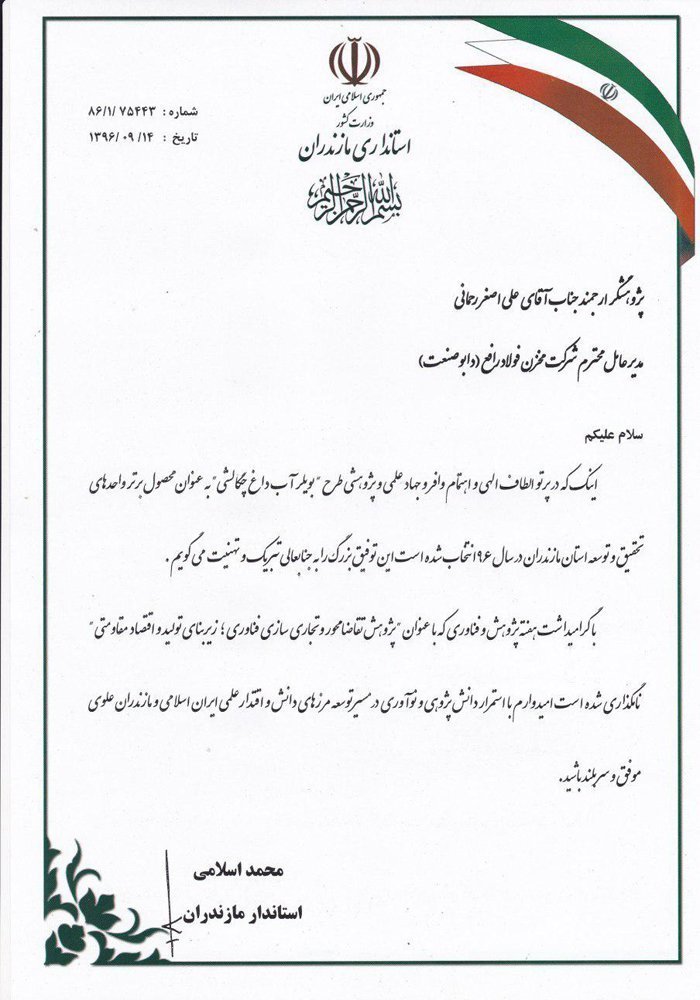 جمهوری اسلامی ایران
وزارت کشور
استانداری مازندران
بسم الله الرحمن الرحیم
شماره : ۸۶/۱/۷۵۴۴۳
تاریخ : ۱۳۹۶/۰۹/۱۴
پژوهشگر ارجمند جناب آقای علی اصغر رحمانی
مدیرعامل محترم شرکت مخزن فولاد رافع (دابو صنعت)
سلام علیکم
اینک که در پرتو الطاف الهی و اهتمام وافر و جهاد علمی و پژوهشی طرح "بویلر آب داغ چگالشی" به عنوان محصول برتر واحدهای
تحقیق و توسعه استان مازندران در سال ۱۳۹۶ انتخاب شده است این توفیق بزرگ را به جنابعالی تبریک و تهنیت می گویم .
با گرامیداشت هفته پژوهش و فناوری که با عنوان "پژوهش تقاضا محور و تجاری سازی فناوری ؛ زیربنای تولید و اقتصاد مقاومتی"
نامگذاری شده است امیدوارم با استمرار دانش پژوهی و نوآوری در مسیر توسعه مرزهای دانش و اقتدار علمی ایران اسلامی و مازندران علوی
موفق و سربلند باشید.
محمد اسلامی
استاندار مازندران